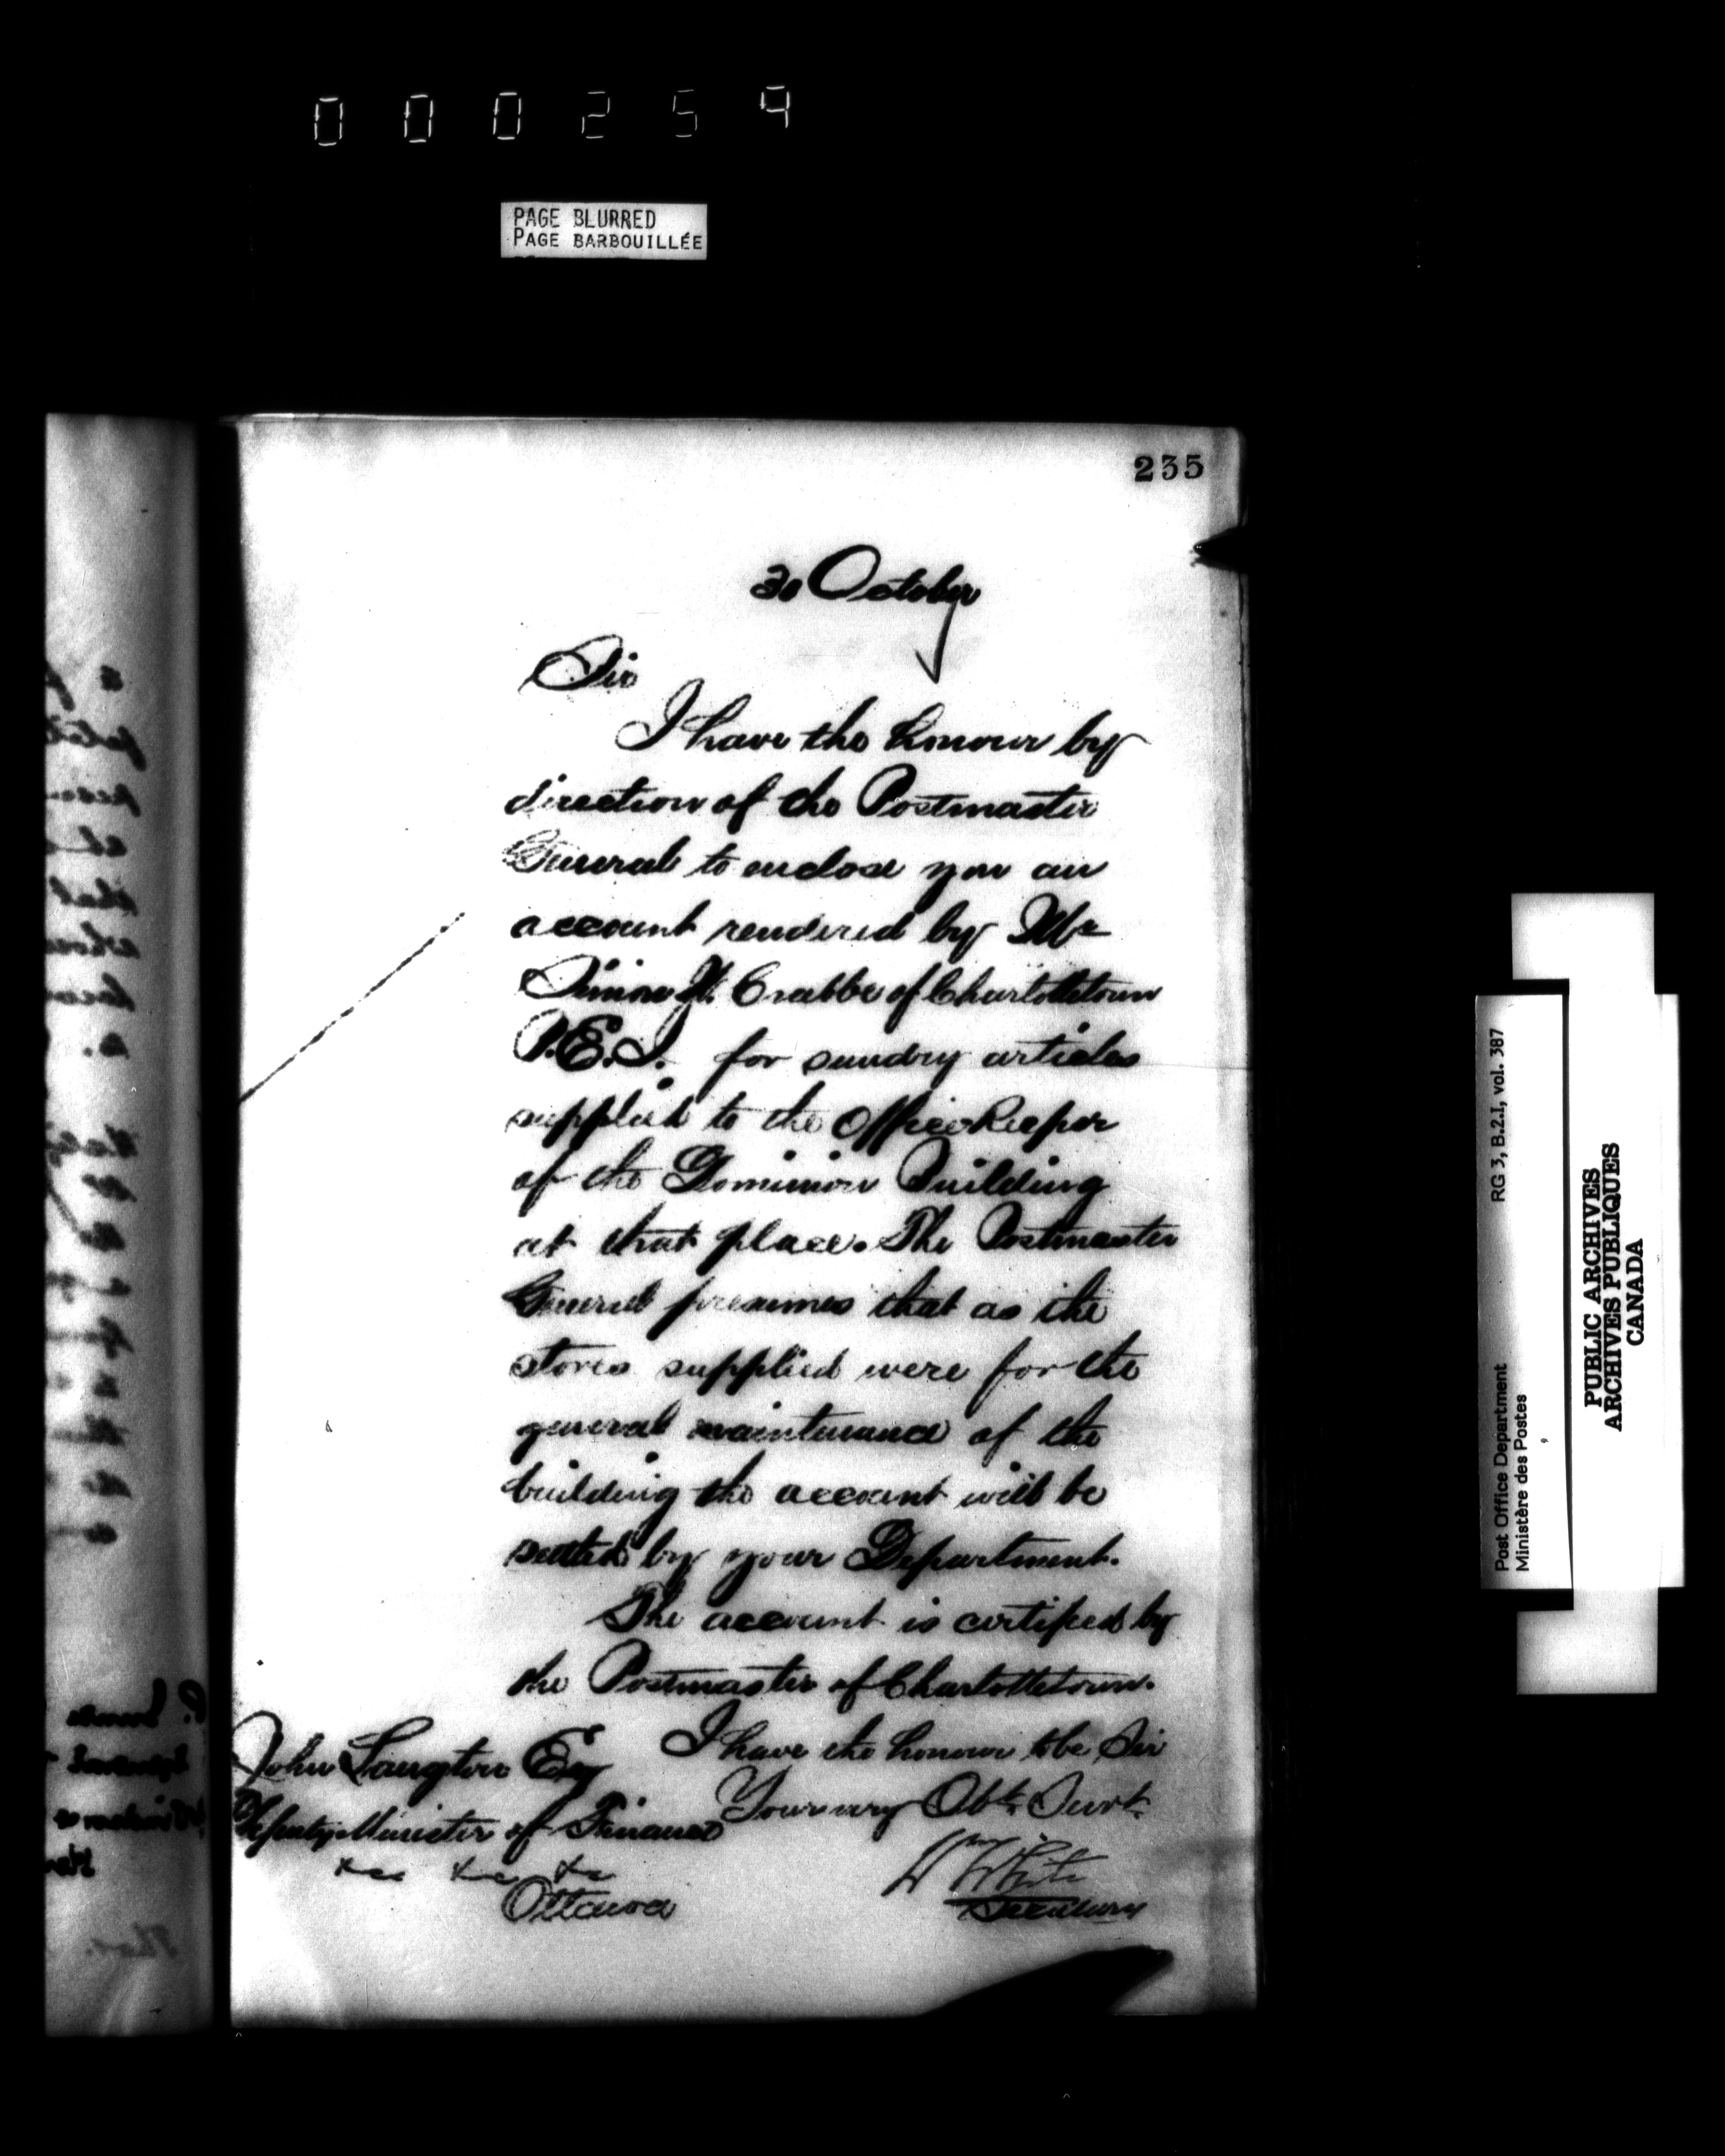 000259
PAGE BLURRED
PAGE BARBOUILLÉE
235
30 October
Sir
I have the honour by
direction of the Postmaster
General to enclose you an
account rendered by Mr
Simon W. Crabbe of Charlottetown
P.E.I. for sundry articles
supplied to the Office Keeper
of the Dominion Building
at that place. The Postmaster
General presumes that as the
stores supplied were for the
general maintenance of the
building the account will be
settled by your Department.
The account is certified by
the Postmaster of Charlottetown.
I have the honour to be Sir
Your very Obt. Servt.
Wm White
Secretary
John Langton Esq
Deputy Minister of Finance
&c &c &c
Ottawa
RG 3, B.2.I, vol. 387
Post Office Department
Ministère des Postes
PUBLIC ARCHIVES
ARCHIVES PUBLIQUES
CANADA